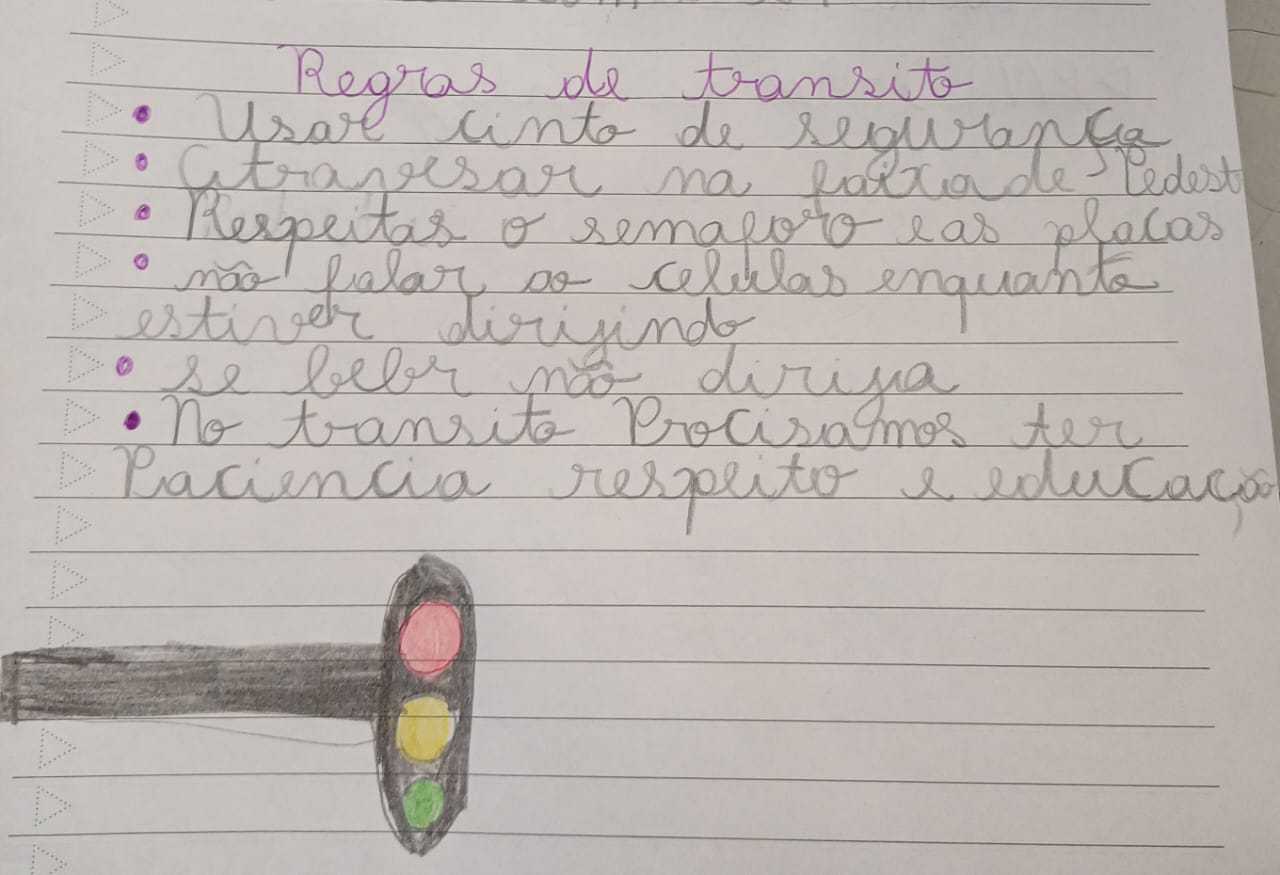 Regras de transito
• Usar cinto de segurança
• Atravesar na faixa de Pedest
• Respeitas o semaforo e as placas
• não falar ao celulas enquanto
estiver dirigindo
• se beber não dirija
• No transito Procisamos ter
Paciencia respeito e educação